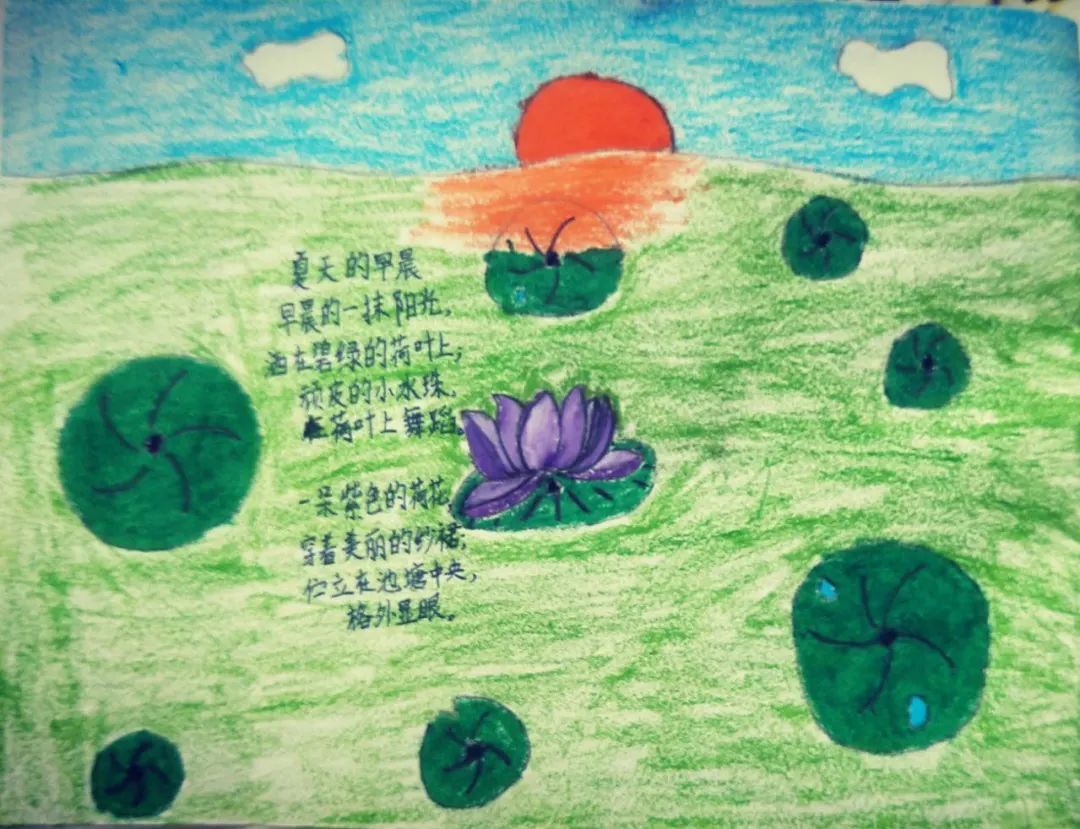 夏天的早晨
早晨的一抹阳光,
洒在碧绿的荷叶上;
顽皮的小水珠。
在荷叶上舞蹈。
一朵紫色的荷花
穿着美丽的纱裙;
伫立在池塘中央,
格外显眼。